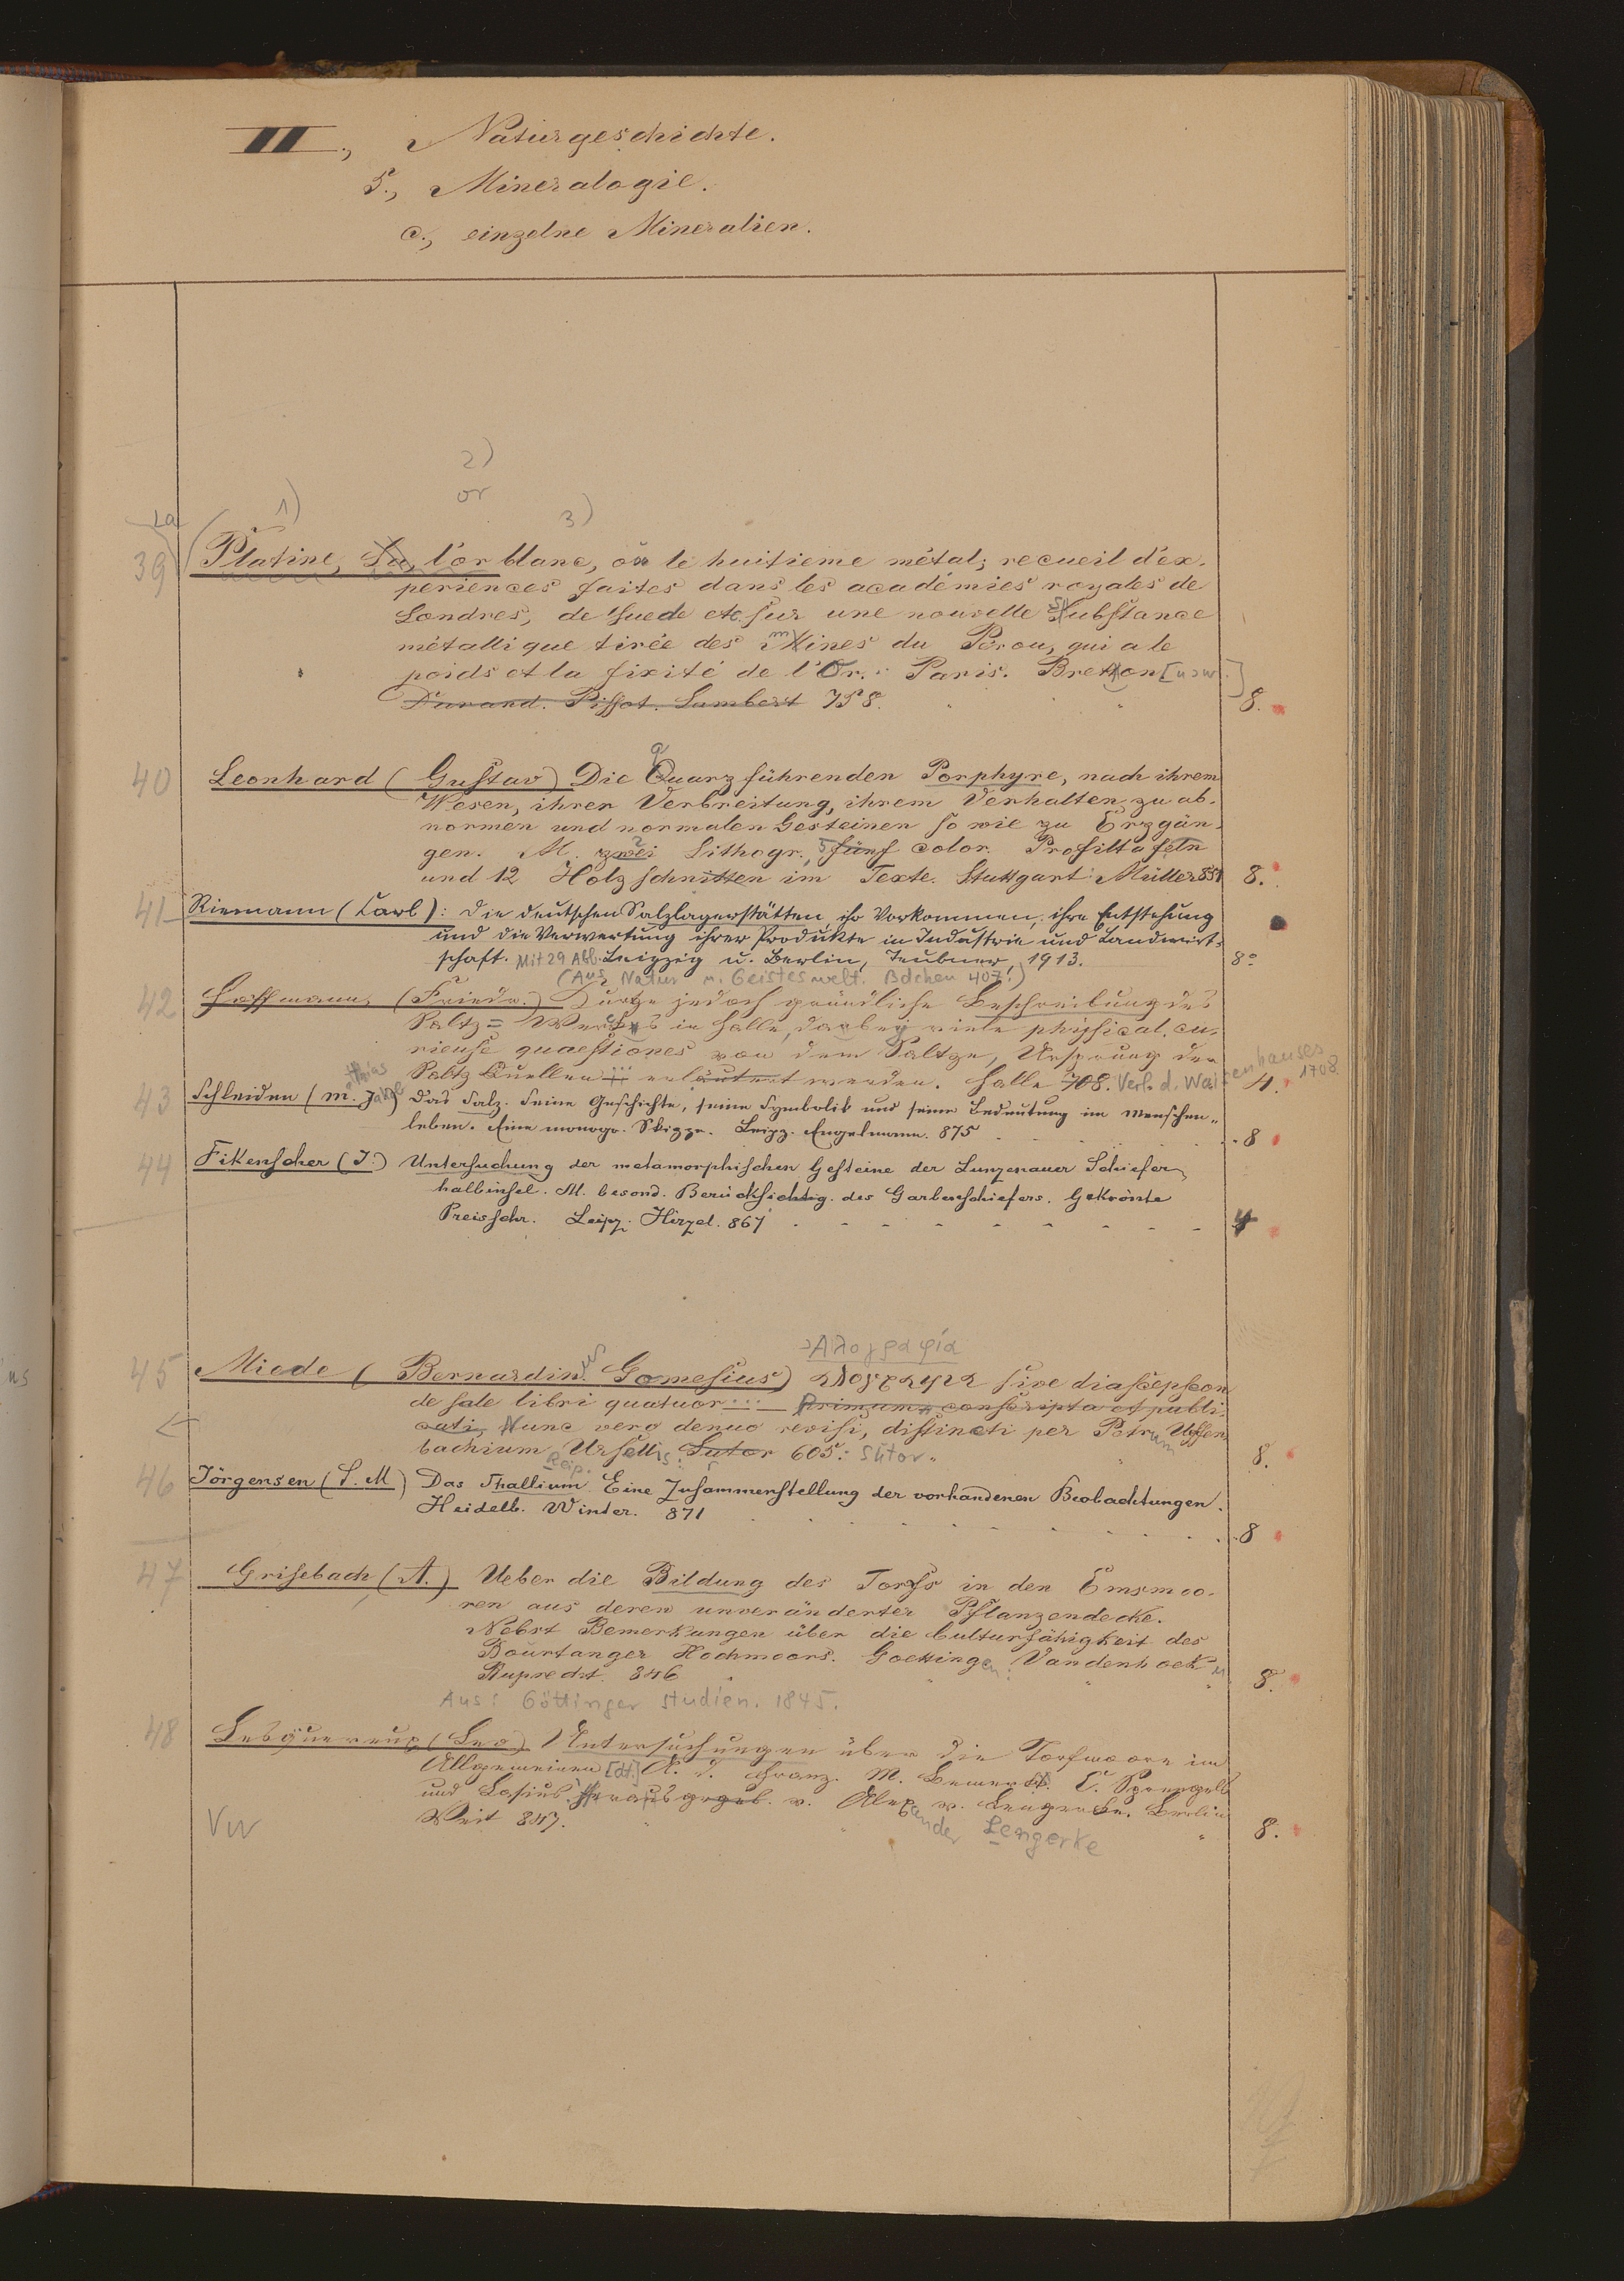 II., Naturgeschichte.
5., Mineralogie.
c., einzelne Mineralien.
2)
or
1)
3)
La
39 Platine, La, l'or blanc, où le huitieme métal; recueil d'ex-
periences faites dans les académies royales de
Londres, de Suede etc. sur une nouvelle Substance
métallique tirée des Mines du Pérou, qui a le
poids et la fixité de l'Or. Paris. Breton [usw.]
Durand. Pissot. Lambert 758. 8.
40 Leonhard (Gustav) Die Quarz führenden Porphyre, nach ihrem
Wesen, ihrer Verbreitung, ihrem Verhalten zu ab-
normen und normalen Gesteinen so wie zu Erzgän-
gen. M. zwei 2 Lithogr., 5 fünf color. Profiltafeln
und 12 Holzschnitten im Texte. Stuttgart: Müller 851 8.
41 Riemann (Carl): Die deutschen Salzlagerstätten, ihr Vorkommen, ihre Entstehung
und die Verwertung ihrer Produkte in Industrie und Landwirt-
schaft. Mit 29 Abb. Leipzig u. Berlin, Teubner, 1913. 8°
(Aus Natur u. Geisteswelt. Bdchen 407.)
42 Hoffmann, (Friedr.) Kurtze jedoch gründliche Beschreibung des
Saltz=Wercks in Halle, darbey viele physical. cu-
rieuse quaestiones von dem Saltze, Ursprung der
Saltz Quellen ... erläutert werden. Halle 708. Verl. d. Waisenhauses 1708 4.
43 Schleiden (M. J.) Das Salz. Seine Geschichte, seine Symbolik und seine Bedeutung im Menschen-
leben. Eine monogr. Skizze. Leipz. Engelmann. 875 8
44 Fikenscher (I.) Untersuchung der metamorphischen Gesteine der Lunzenauer Schiefer
halbinsel. M. besond. Berücksichtig. des Garbenschiefers. Gekrönte
Preisschr. Leipz. Hirzel. 867 4
Ἁλογραφία
45 Miede (Bernardinus Gomesius) αλογραφια sive diascepseon
de sale libri quatuor ... primum conscripta et publi-
cati, Nunc vero denuo revisi, distincti per Petrum Uffen
bachium Ursellis: Sutor 605. Sutor 8.
Reip.
46 Jörgensen (S. M) Das Thallium. Eine Zusammenstellung der vorhandenen Beobachtungen.
Heidelb. Winter. 871 8
47 Grisebach (A.) Ueber die Bildung des Torfs in den Emsmoo-
ren aus deren unveränderter Pflanzendecke.
Nebst Bemerkungen über die Culturfähigkeit des
Bourtanger Hochmoors. Goettingen: Vandenhoek u
Ruprecht. 846 8.
Aus: Göttinger Studien. 1845.
48 Lesquereux (Leo) Untersuchungen über die Torfmoore im
Allgemeinen [dt.] A. d. Franz. M. Bemerk. C. Sprengels
und Lasius' herausgegeb. v. Alexander v. Lengerke. Berlin
Veit 847. 8.
Lengerke